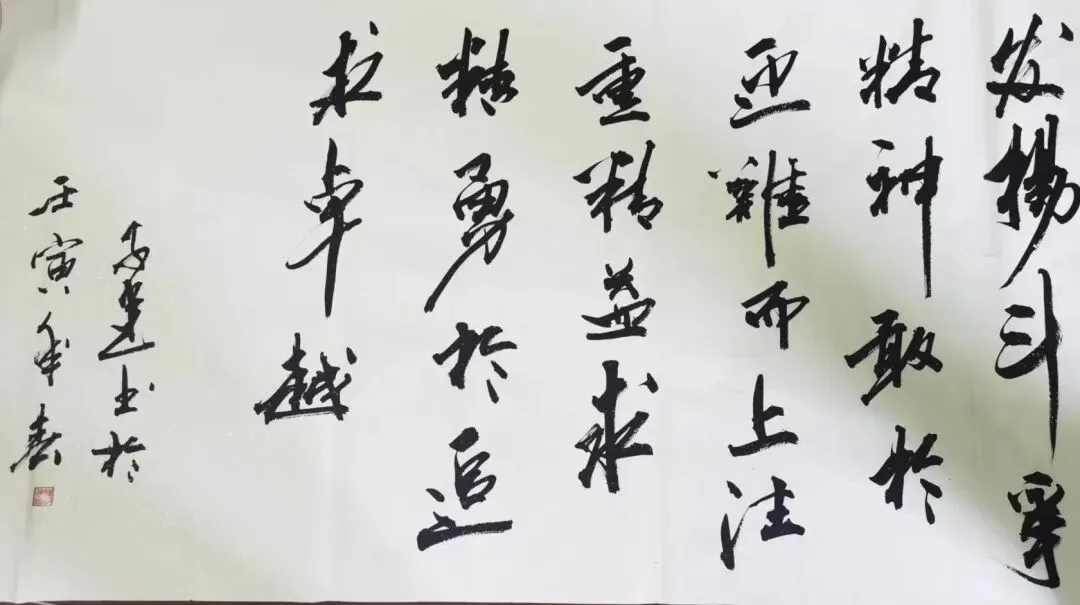 发揚斗爭
精神敢於
迎難而上注
重精益求
精勇於追
求卓越
书於
壬寅年春